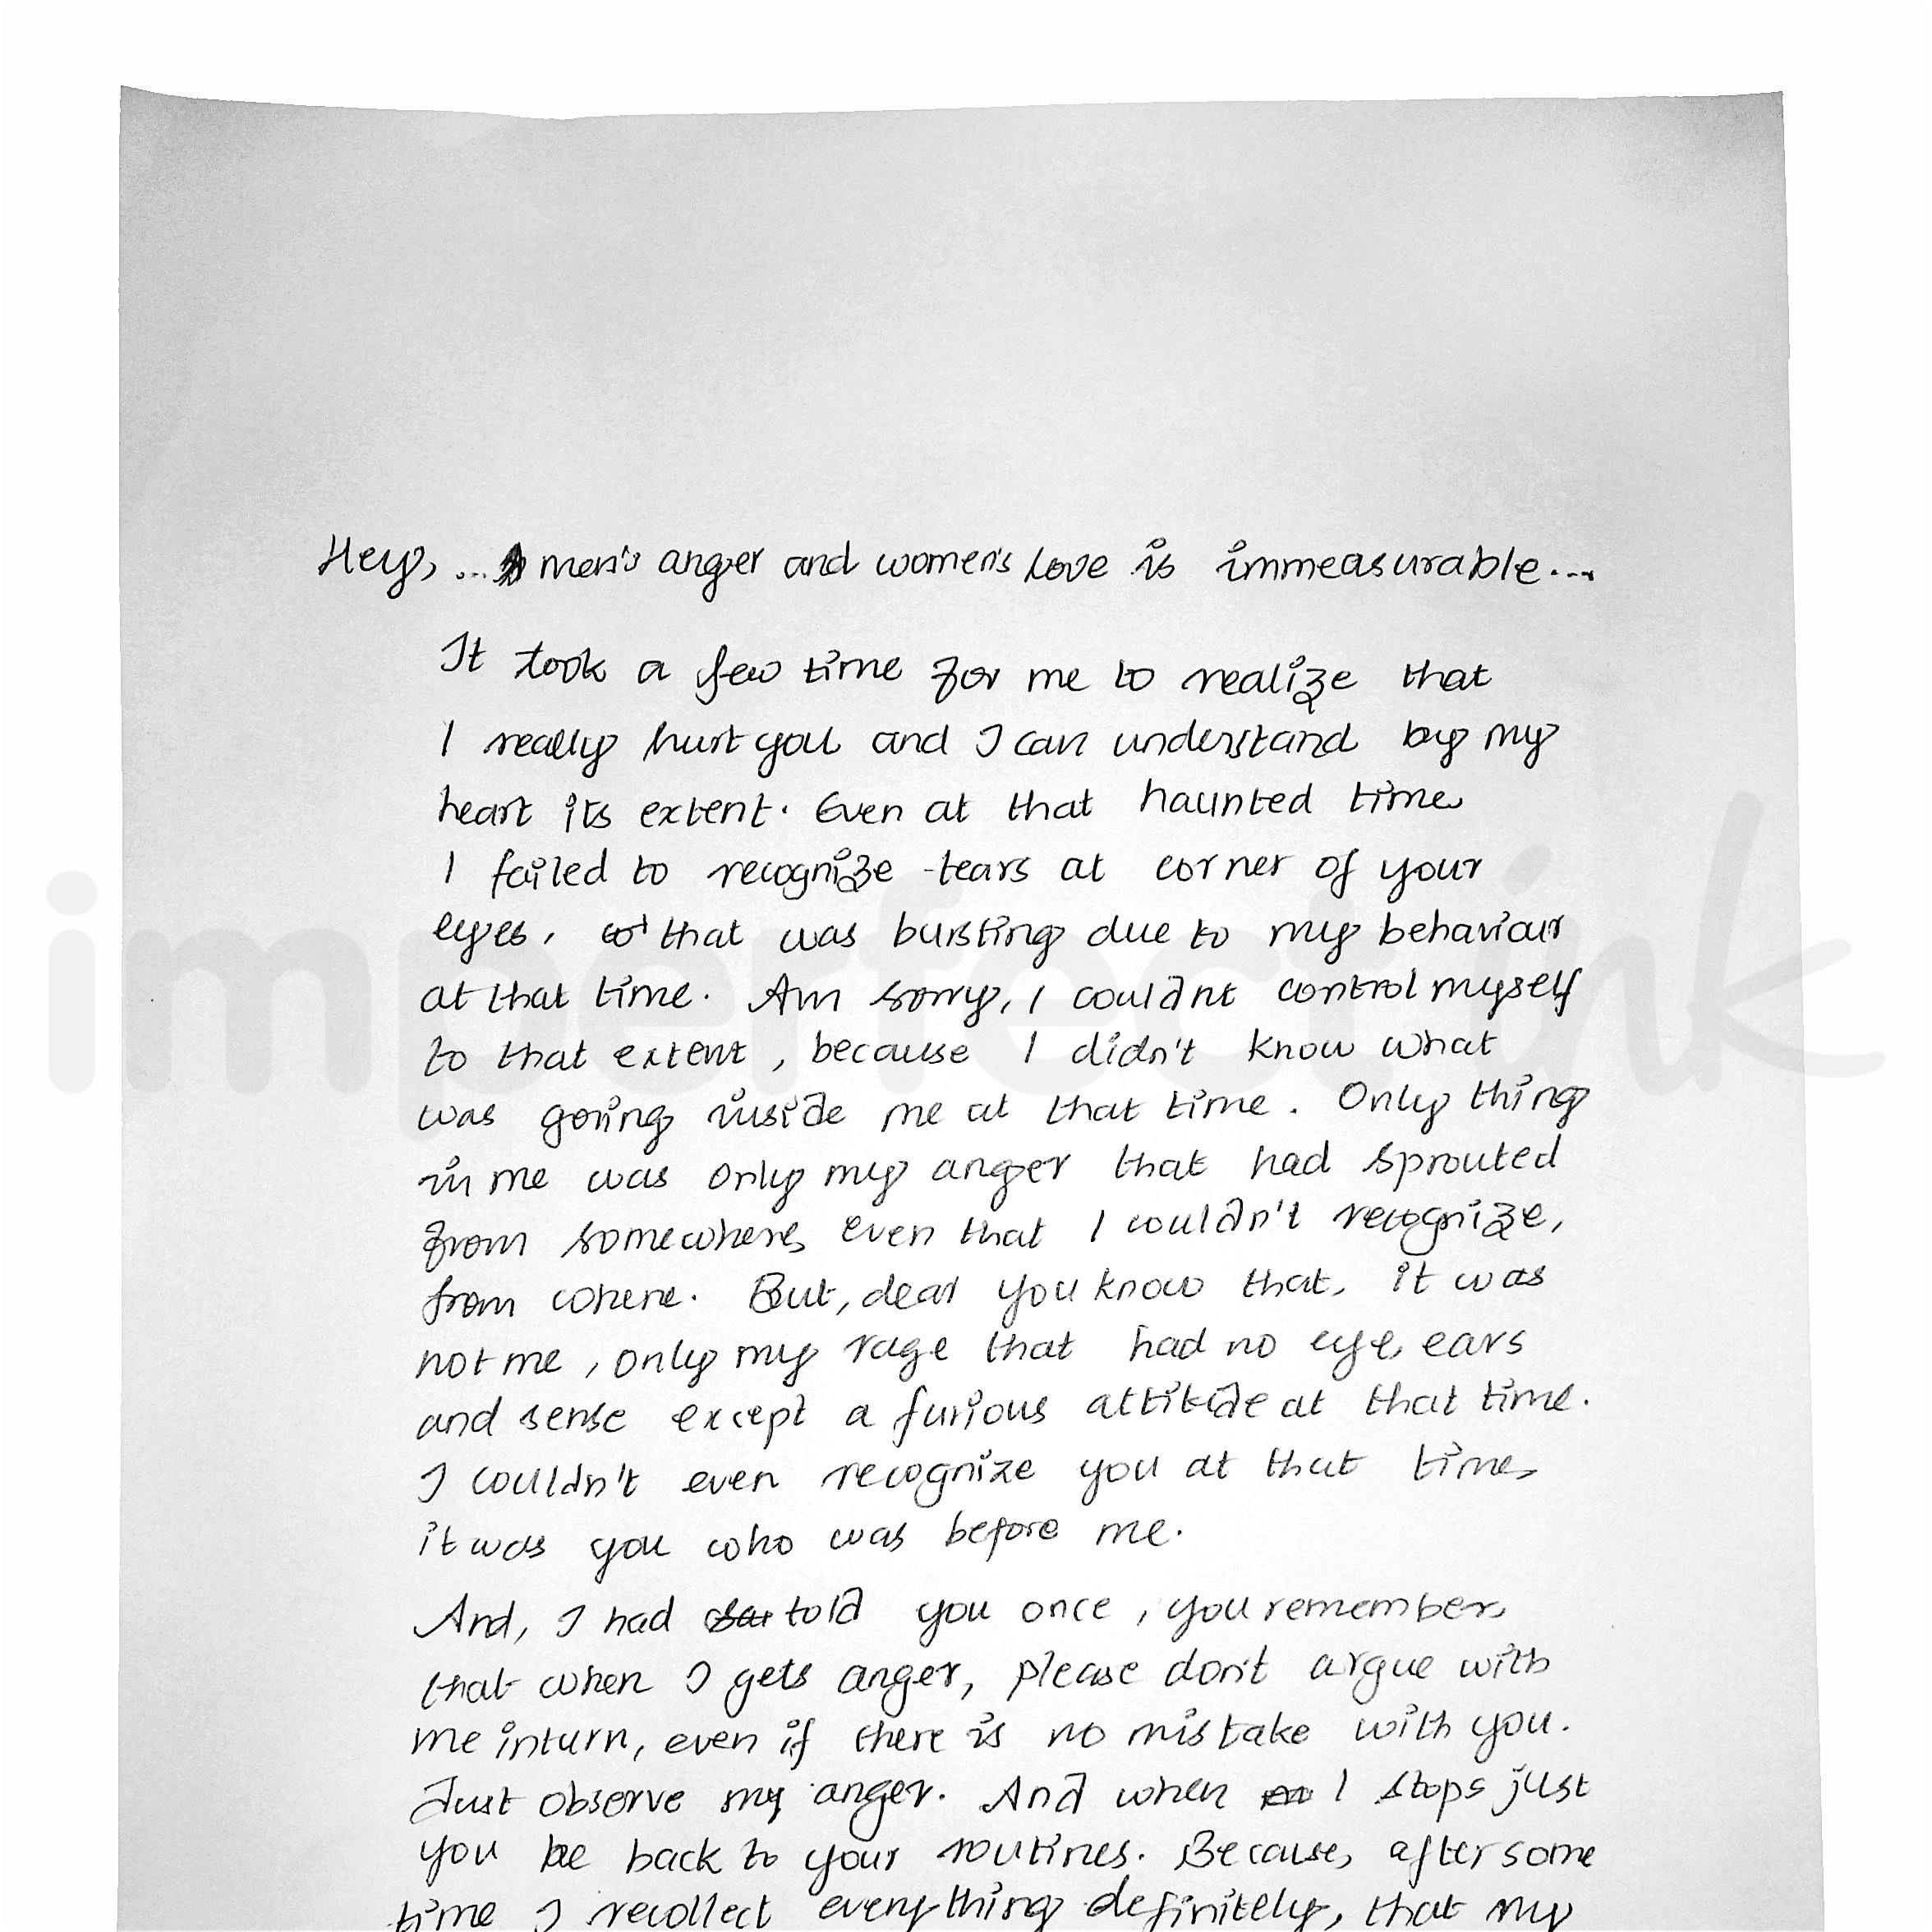 Hey, ... men's anger and women's love is immeasurable...
It took a few time for me to realize that
I really hurt you and I can understand by my
heart its extent. Even at that haunted time
I failed to recognize tears at corner of your
eyes, that was bursting due to my behaviour
at that time. Am sorry, I couldnt control myself
to that extent, because I didn't know what
was going inside me at that time. Only thing
in me was only my anger that had sprouted
from somewhere, even that I couldn't recognize,
from where. But, dear you know that, it was
not me, only my rage that had no eye, ears
and sense except a furious attitude at that time.
I couldn't even recognize you at that time,
it was you who was before me.
And, I had told you once, you remember,
that when I gets anger, please don't argue with
me inturn, even if there is no mistake with you.
Just observe my anger. And when I stops just
you be back to your routines. Because, after some
time I recollect everything definitely, that my
imperfect ink